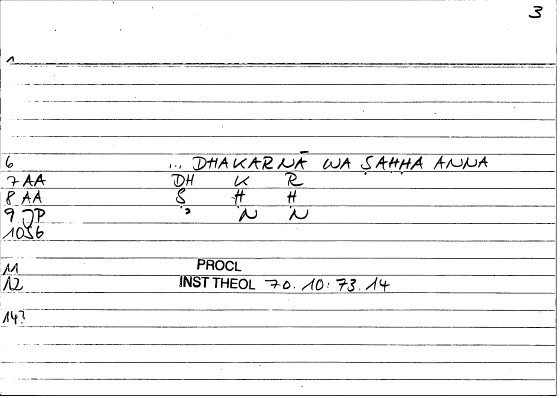 3
1
6 ... DHAKARNĀ WA ṢAḤḤA ANNA
7 AA DH K R
8 AA Ṣ Ḥ Ḥ
9 JP ʾ N N
10 56
11 PROCL
12 INST THEOL 70.10:73.14
14?